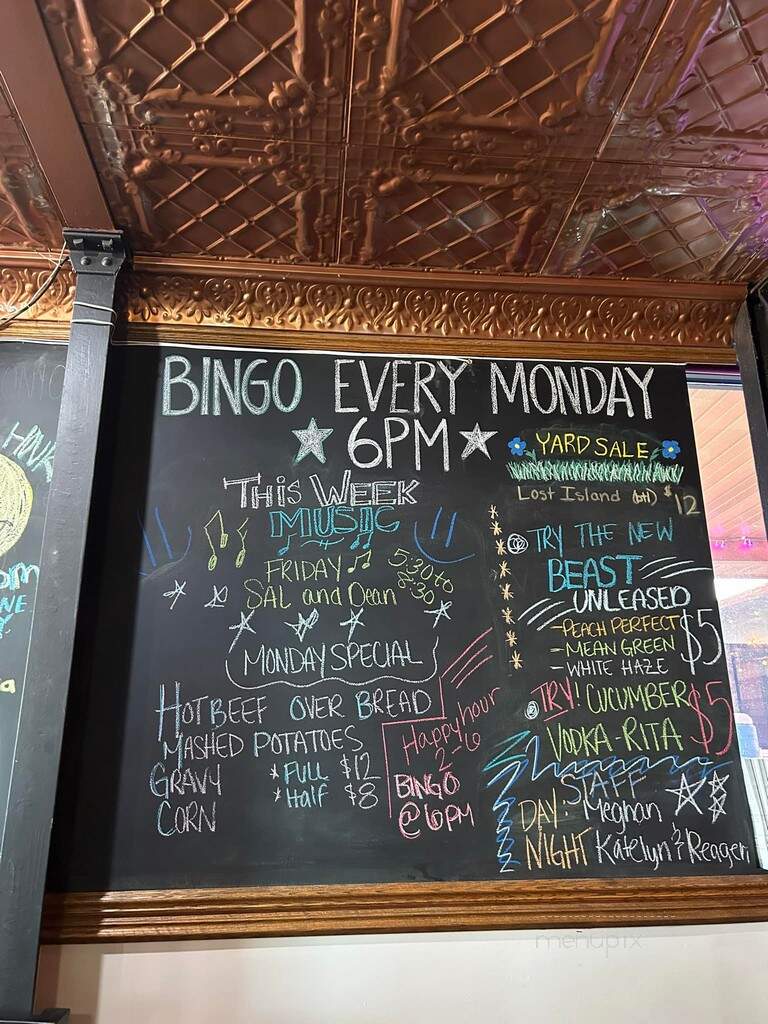 BINGO EVERY MONDAY
6PM
THIS WEEK
MUSIC
FRIDAY
5:30 to
8:30
SAL and Dean
MONDAY SPECIAL
HOT BEEF OVER BREAD
MASHED POTATOES
GRAVY
CORN
* FULL $12
* Half $8
Happy hour
2-6
BINGO
@ 6PM
YARD SALE
Lost Island (btl) $12
TRY THE NEW
BEAST
UNLEASED
- PEACH PERFECT
- MEAN GREEN
- WHITE HAZE
$5
TRY! CUCUMBER
VODKA-RITA
$5
STAFF
DAY: Meghan
NIGHT Katelyn & Reagen
menupix